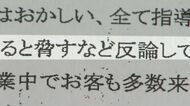 はおかしい、全て指導
ると脅すなど反論して
業中でお客も多数来